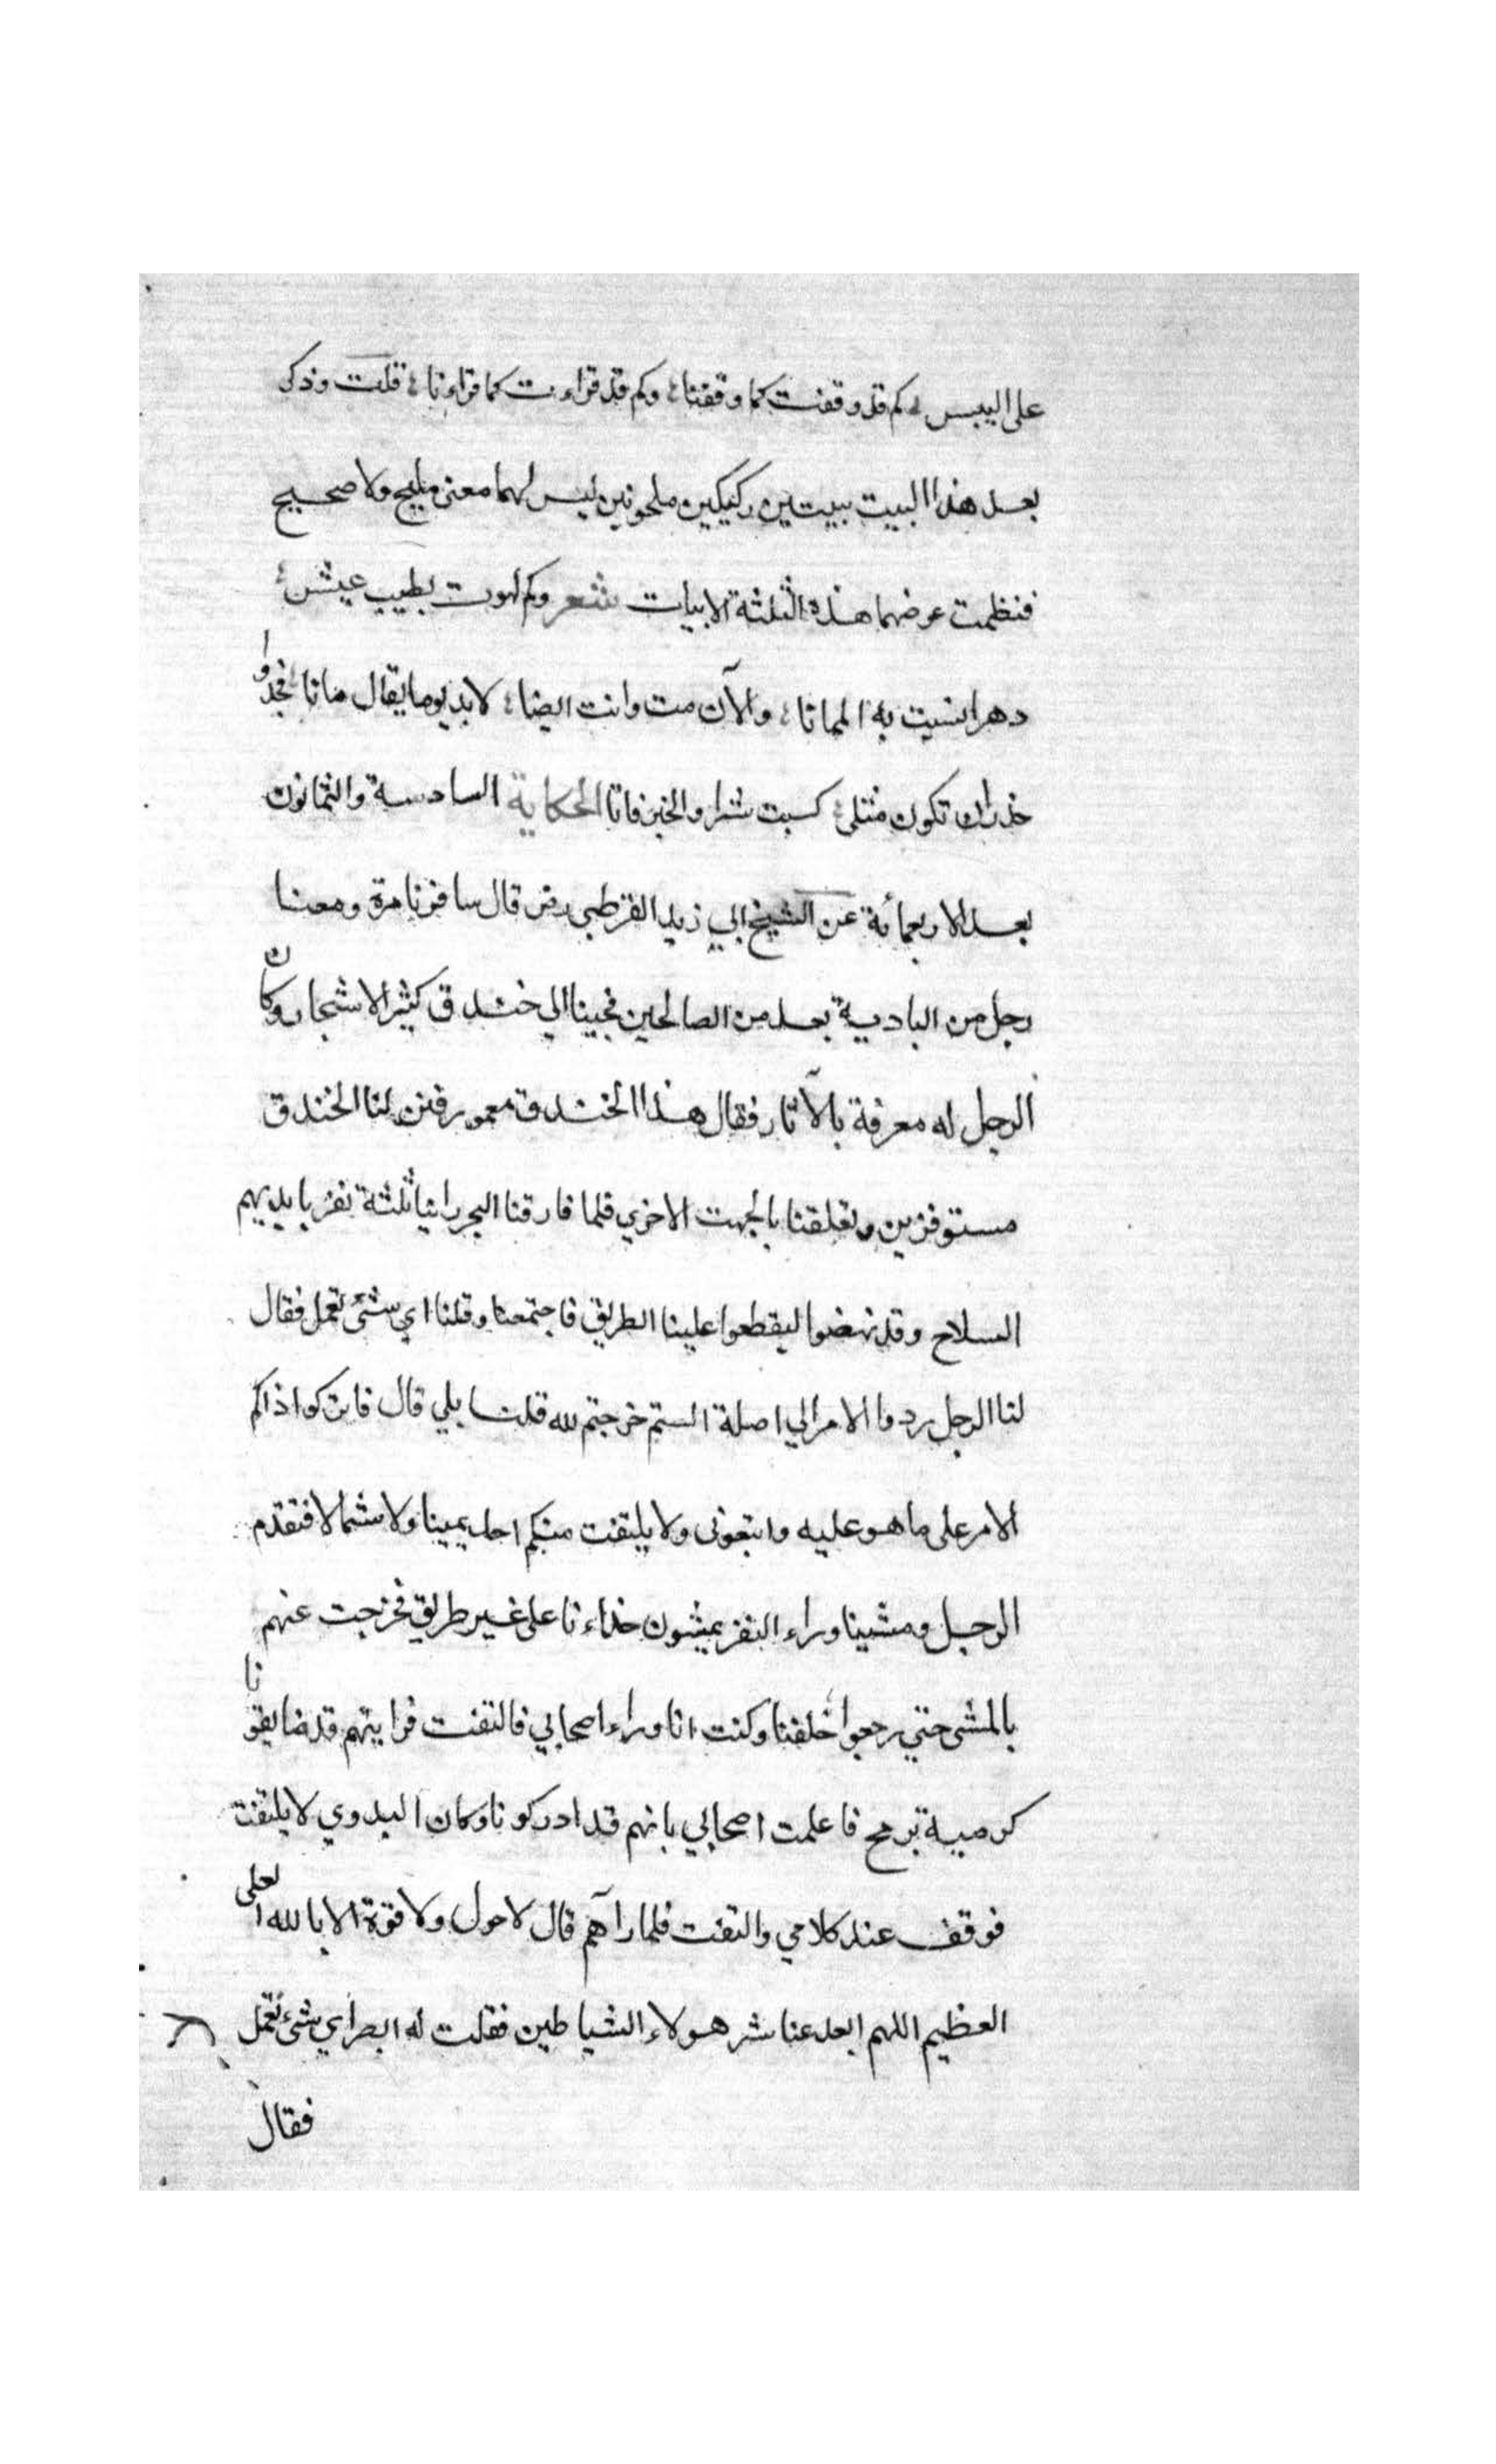 على اليبس كم قد وقفت كما وقفنا، وكم قد قراءت كما قراءنا، قلت وذكر
بعد هذا البيت بيتين ركيكين ملحونين ليس لهما معنى مليح ولا صحيح
فنظمت عوضهما هذه الثلثة الابيات شعر وكم لهوت بطيب عيش
دهرا نسيت به المماتا، والآن مت وانت ايضا، لابد يوما يقال ماتا، فجدوا
حذرا ان تكون مثلي، كسبت شرا والخير فاتا الحكاية السادسة والثمانون
بعد الاربعمائة عن الشيخ ابي زيد القرطبي رض قال سافرنا مرة ومعنا
رجل من البادية يعد من الصالحين فجينا الي خندق كثير الاشجار وكان
الرجل له معرفة بالآثار فقال هذا الخندق معمور فنزلنا الخندق
مستوفزين وتعلقنا بالجهت الاخري فلما فارقنا البحر راينا ثلثة نفر بايديهم
السلاح وقد نهضوا ليقطعوا علينا الطريق فاجتمعنا وقلنا اي شئ نعمل فقال
لنا الرجل ردوا الامر الي اصلة الستم خرجتم لله قلنا بلي قال فاتركوا اذاكم
الامر على ما هو عليه واتبعوني ولا يلتفت منكم احد يمينا ولا شمالا فتقدم
الرجل ومشينا وراءه النفر يمشون حذاءنا على غير طريق فخرجت عنهم
بالمشي حتي رجعوا خلفنا وكنت انا وراء اصحابي فالتفت فرايتهم قد ضايقونا
كرمية برمح فاعلمت اصحابي بانهم قد ادركونا وكان البدوي لا يلتفت
فوقف عند كلامي والتفت فلما رآهم قال لا حول ولا قوة الا بالله العلى
العظيم اللهم ابعد عنا شر هولاء الشياطين فقلت له ابصر اي شئ نعمل
فقال